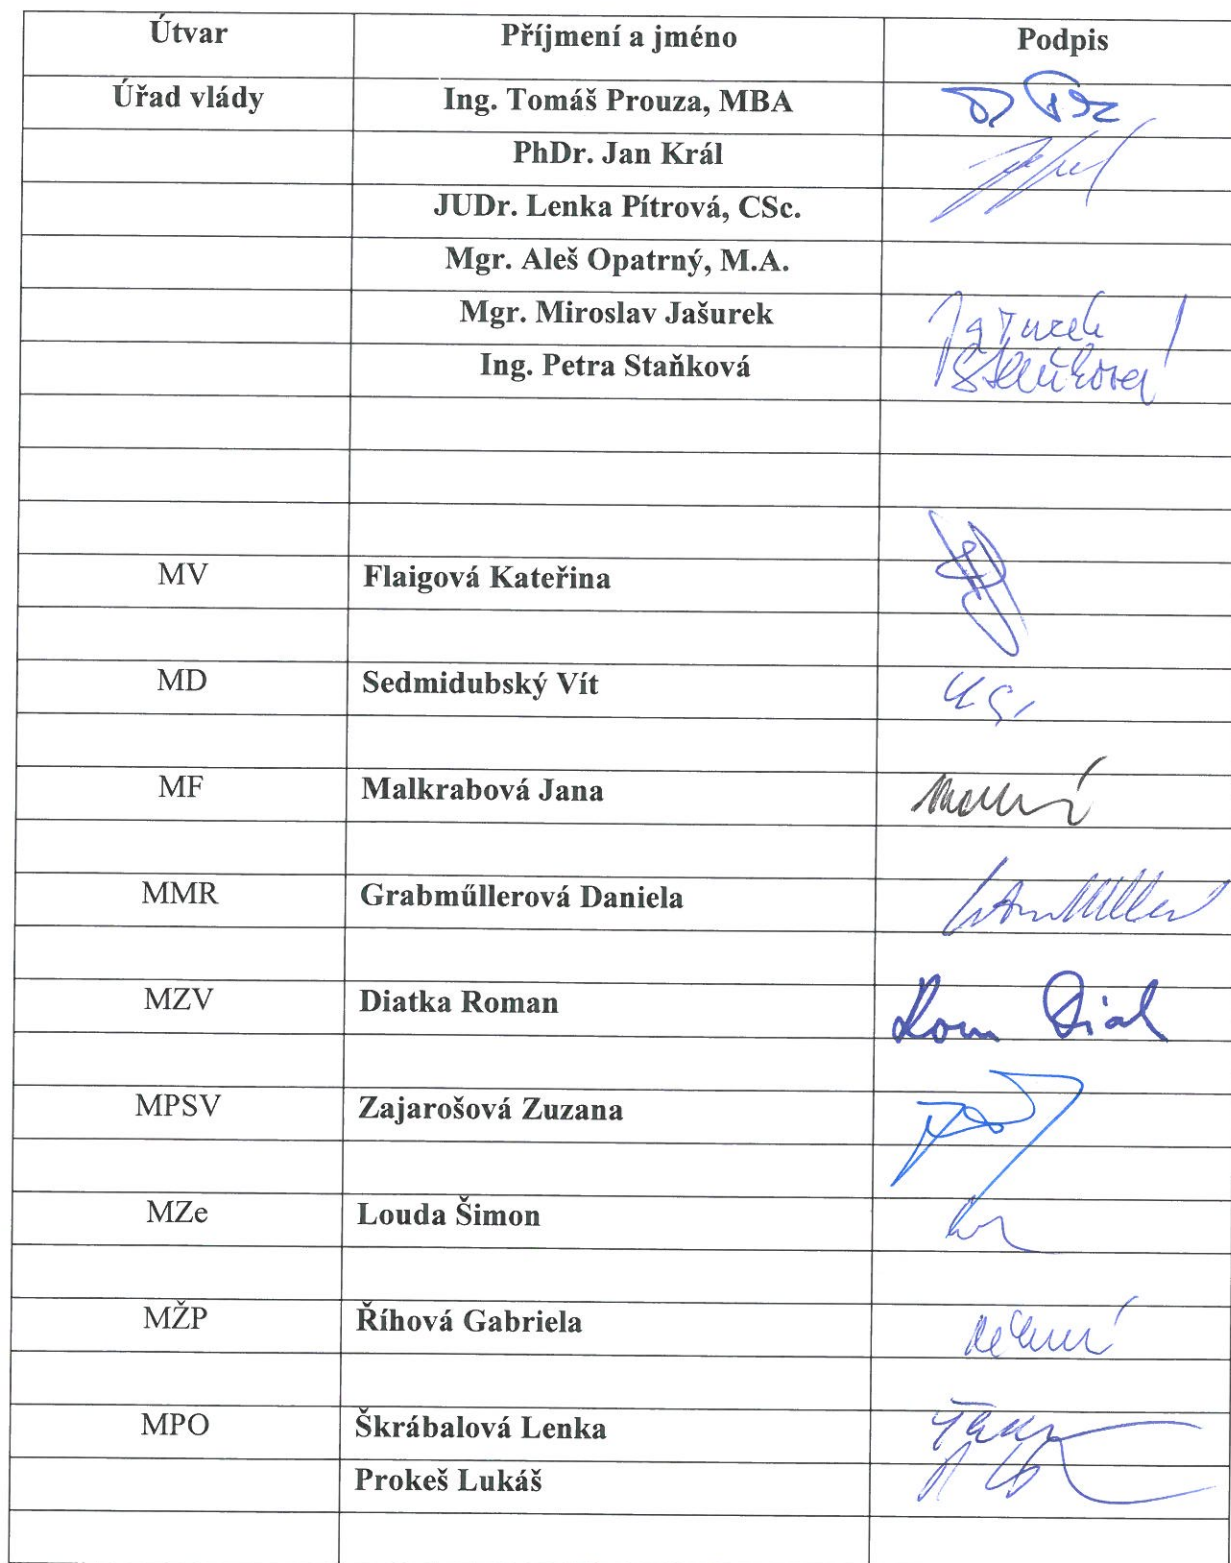 Útvar Příjmení a jméno Podpis
Úřad vlády Ing. Tomáš Prouza, MBA
PhDr. Jan Král
JUDr. Lenka Pítrová, CSc.
Mgr. Aleš Opatrný, M.A.
Mgr. Miroslav Jašurek Jašurek
Ing. Petra Staňková Staňková
MV Flaigová Kateřina
MD Sedmidubský Vít
MF Malkrabová Jana
MMR Grabműllerová Daniela
MZV Diatka Roman
MPSV Zajarošová Zuzana
MZe Louda Šimon
MŽP Říhová Gabriela
MPO Škrábalová Lenka
Prokeš Lukáš